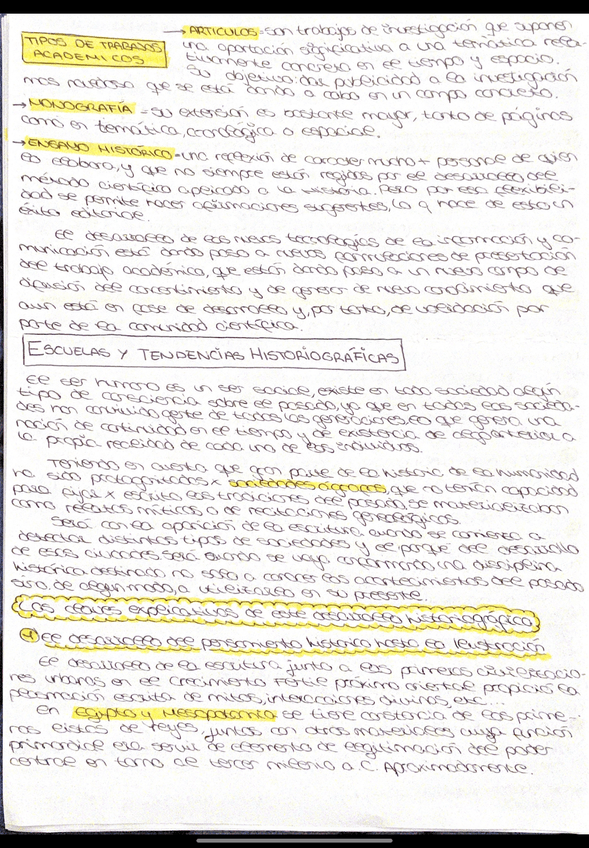 TIPOS DE TRABAJOS
ACADEMICOS
→ ARTICULOS = son trabajos de investigación que suponen
una aportación significativa a una temática rela-
tivamente concreta en el tiempo y espacio.
Su objetivo: dar publicidad a la investigación
mas novedosa que se está dando a cabo en un campo concreto.
→ MONOGRAFÍA = su extensión es bastante mayor, tanto de páginas
como en temática, cronológica o espacial.
→ ENSAYO HISTÓRICO = una reflexión de caracter mucho + personal de quien
lo elabora, y que no siempre están regidos por el desarrollo del
método científico aplicado a la Historia. Pero por esa flexibili-
dad se permite hacer afirmaciones sugerentes, lo q hace de esto un
éxito editorial.
El desarrollo de las nuevas tecnologías de la información y co-
municación está dando paso a nuevas formulaciones de presentación
del trabajo académico, que están dando paso a un nuevo campo de
difusión del conocimiento y de generar de nuevo conocimiento que
aun está en fase de desarrollo y, por tanto, de validación por
parte de la comunidad científica.
ESCUELAS Y TENDENCIAS HISTORIOGRÁFICAS
El ser humano es un ser social, existe en toda sociedad algún
tipo de consciencia sobre el pasado, ya que en todas las socieda-
des han convivido gente de todas las generaciones, lo que genera una
noción de continuidad en el tiempo y de existencia de algo anterior a
la propia realidad de cada uno de los individuos.
Teniendo en cuenta que gran parte de la historia de la humanidad
ha sido protagonizada x sociedades ágrafas, que no tenían capacidad
para fijar x escrito las tradiciones del pasado se materializaban
como relatos míticos o de recitaciones genealógicas.
Será con la aparición de la escritura cuando se comienza a
detectar distintos tipos de sociedades y el porqué del desarrollo
de estas ciudades será cuando se vaya conformando una disciplina
histórica destinada no solo a conocer los acontecimientos del pasado
sino, de algún modo, a utilizarlo en su presente.
Las claves explicativas de este desarrollo historiográfico
1 El desarrollo del pensamiento historico hasta la Ilustración
El desarrollo de la escritura junto a las primeras civilizacio-
nes urbanas en el Crecimiento Fértil próximo oriental propició la
plasmación escrita de mitos, interacciones divinas, etc...
En Egipto y Mesopotamia se tiene constancia de las prime-
ras listas de reyes, juntos con otros materiales cuya función
primordial era servir de elemento de legitimación del poder
central en torno al tercer milenio a.C. Aproximadamente.